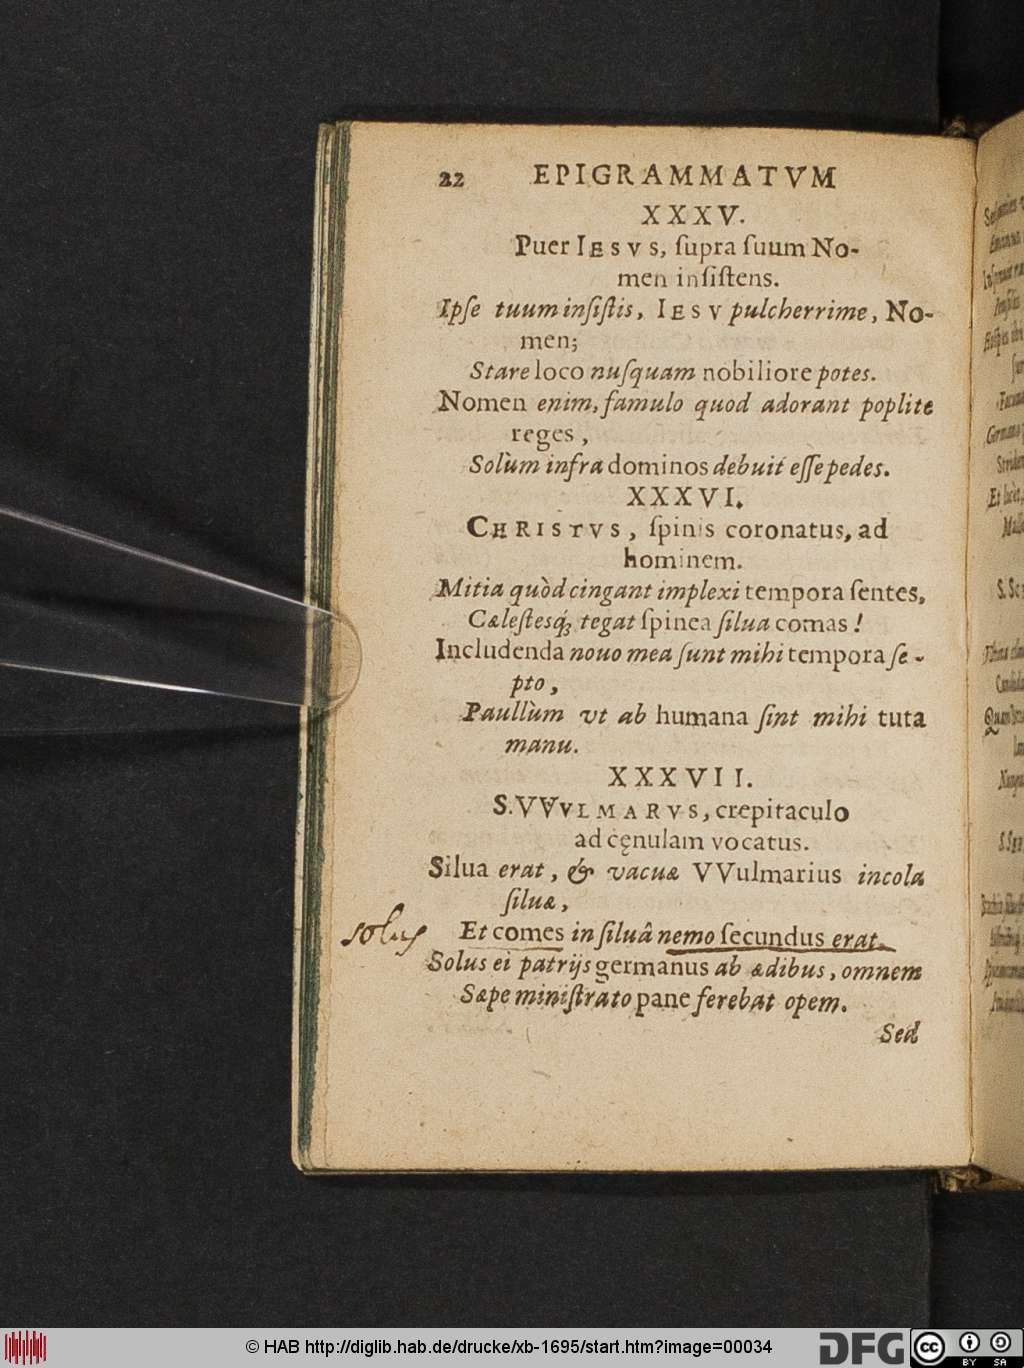 22 EPIGRAMMATVM
XXXV.
Puer IESVS, ſupra ſuum No-
men inſiſtens.
Ipſe tuum inſiſtis, IESV pulcherrime, No-
men;
Stare loco nuſquam nobiliore potes.
Nomen enim, famulo quod adorant poplite
reges,
Solùm infra dominos debuit eſſe pedes.
XXXVI.
CHRISTVS, ſpinis coronatus, ad
hominem.
Mitia quòd cingant implexi tempora ſentes,
Cæleſtesq́ꝫ tegat ſpinea ſilua comas!
Includenda nouo mea ſunt mihi tempora ſe-
pto,
Paullùm vt ab humana ſint mihi tuta
manu.
XXXVII.
S. VVVLMARVS, crepitaculo
ad cęnulam vocatus.
Silua erat, & vacuæ VVulmarius incola
ſiluæ,
solus Et comes in ſiluâ nemo ſecundus erat.
Solus ei patrijs germanus ab ædibus, omnem
Sæpe miniſtrato pane ferebat opem.
Sed
© HAB http://diglib.hab.de/drucke/xb-1695/start.htm?image=00034
DFG
cc
BY SA